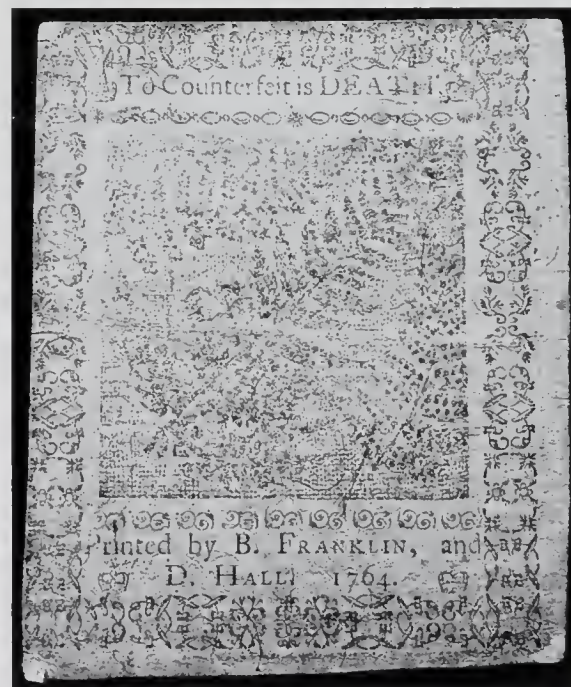 To Counterfeit is DEATH.
Printed by B. FRANKLIN, and
D. HALL. 1764.